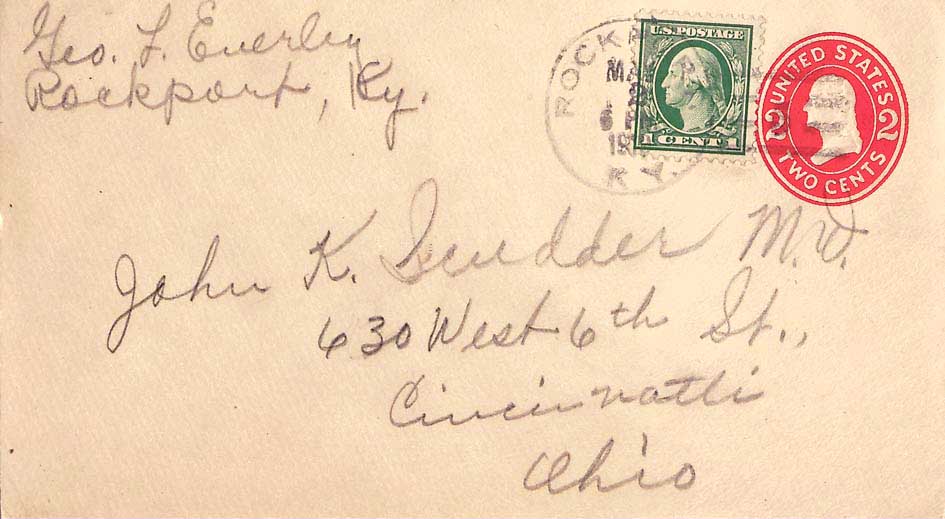 Geo. L. Everley
Rockport, Ky.
U.S. POSTAGE
1 CENT 1
UNITED STATES
2 2
TWO CENTS
KY.
John K. Scudder M.D.
630 West 6th St.,
Cincinnatti
Ohio